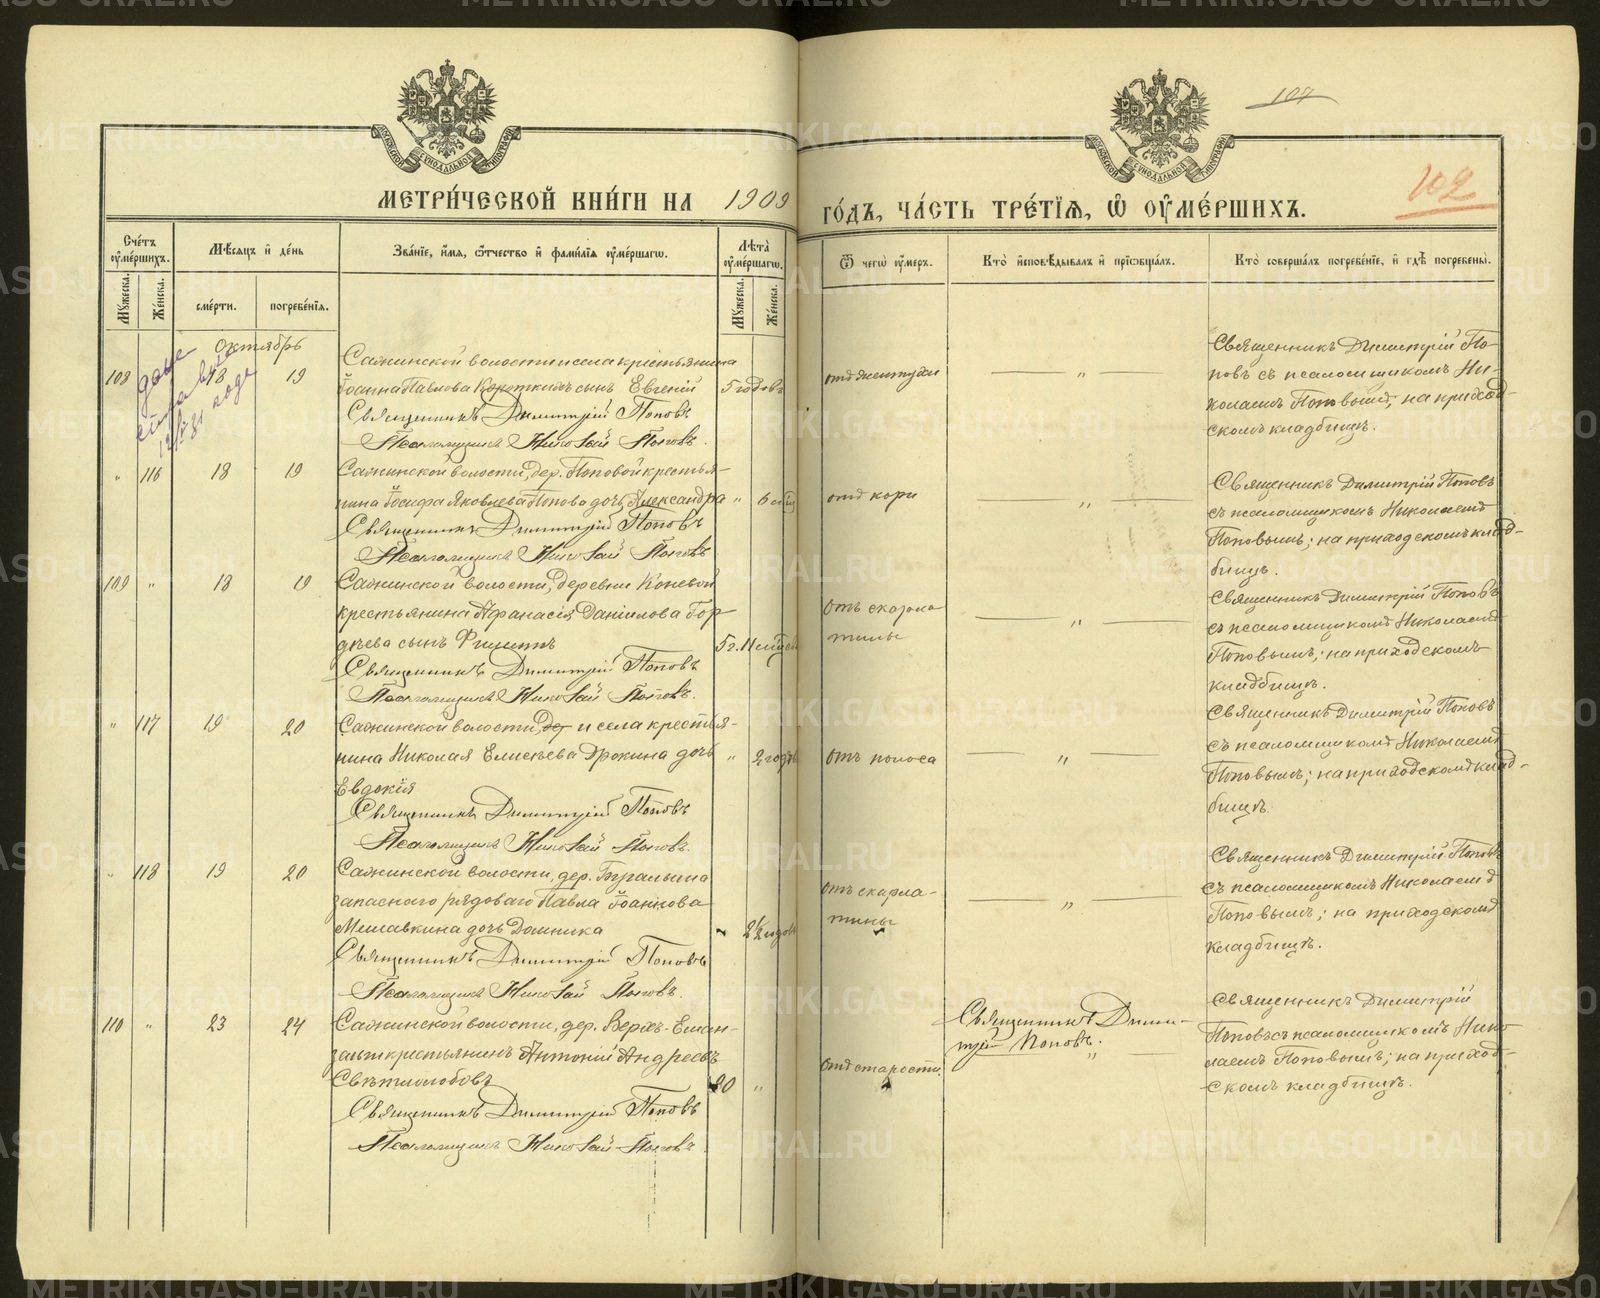 МЕТРИЧЕСКОЙ КНИГИ НА 1909 ГОДЪ, ЧАСТЬ ТРЕТІЯ, Ѿ ОУМЕРШИХЪ.
107
102
МОСКОВСКОЙ СУНОДАЛЬНОЙ ТИПОГРАФІИ
МОСКОВСКОЙ СУНОДАЛЬНОЙ ТИПОГРАФІИ
Счетъ оумершихъ.
Мужеска.
Женска.
Мѣсяцъ и день
смерти.
погребенія.
Званіе, имя, отчество и фамилія оумершаго.
Лѣта оумершаго.
Мужеска.
Женска.
Ѿ чего оумеръ.
Кто исповѣдывалъ и пріобщалъ.
Кто совершалъ погребеніе, и гдѣ погребены.
октябрь
108 18 19
Сажинской волости и села крестьянина
Іоанна Павлова Короткихъ сынъ Евгеній
5 годовъ
Священникъ Димитрій Поповъ
Псаломщикъ Николай Поповъ.
— „ —
Священникъ Димитрій По-
повъ съ псаломщикомъ Ни-
колаемъ Поповымъ, на приход-
скомъ кладбищѣ.
„ 116 18 19
Сажинской волости, дер. Поповой крестья-
нина Іосифа Яковлева Попова дочь Александра
„ 6
Священникъ Димитрій Поповъ
Псаломщикъ Николай Поповъ
отъ кори
— „ —
Священникъ Димитрій Поповъ
съ псаломщикомъ Николаемъ
Поповымъ; на приходскомъ клад-
бищѣ.
109 „ 18 19
Сажинской волости, деревни Коневой
крестьянина Афанасія Даніилова Гор-
дѣева сынъ Филиппъ
5 г. 11
Священникъ Димитрій Поповъ
Псаломщикъ Николай Поповъ.
Отъ скарла-
тины
— „ —
Священникъ Димитрій Поповъ
съ псаломщикомъ Николаемъ
Поповымъ; на приходскомъ
кладбищѣ.
„ 117 19 20
Сажинской волости, и села крестья-
нина Николая Елисѣева Дрокина дочь
Евдокія
„ 2 годовъ
Священникъ Димитрій Поповъ
Псаломщикъ Николай Поповъ.
Отъ поноса
— „ —
Священникъ Димитрій Поповъ
съ псаломщикомъ Николаемъ
Поповымъ; на приходскомъ клад-
бищѣ.
„ 118 19 20
Сажинской волости, дер.
запаснаго рядоваго Павла Іоаннова
Мешавкина дочь Домника
„ 2½ годов
Священникъ Димитрій Поповъ
Псаломщикъ Николай Поповъ.
Отъ скарла-
тины
— „ —
Священникъ Димитрій Поповъ
съ псаломщикомъ Николаемъ
Поповымъ; на приходскомъ
кладбищѣ.
110 „ 23 24
Сажинской волости, дер. Верхъ-
крестьянинъ Антоній Андреевъ
Свѣтлолобовъ
„
Священникъ Димитрій Поповъ
Псаломщикъ Николай Поповъ.
Отъ старости.
Священникъ Дими-
трій Поповъ.
„
Священникъ Димитрій
Поповъ съ псаломщикомъ Нико-
лаемъ Поповымъ; на приход-
скомъ кладбищѣ.
METRIKI.GASO-URAL.RU